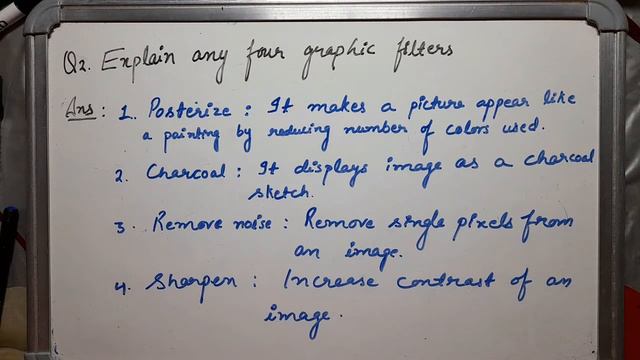 Q2. Explain any four graphic filters
Ans : 1. Posterize : It makes a picture appear like
a painting by reducing number of colors used.
2. Charcoal : It displays image as a charcoal
sketch.
3. Remove noise : Remove single pixels from
an image.
4. Sharpen : Increase contrast of an
image.